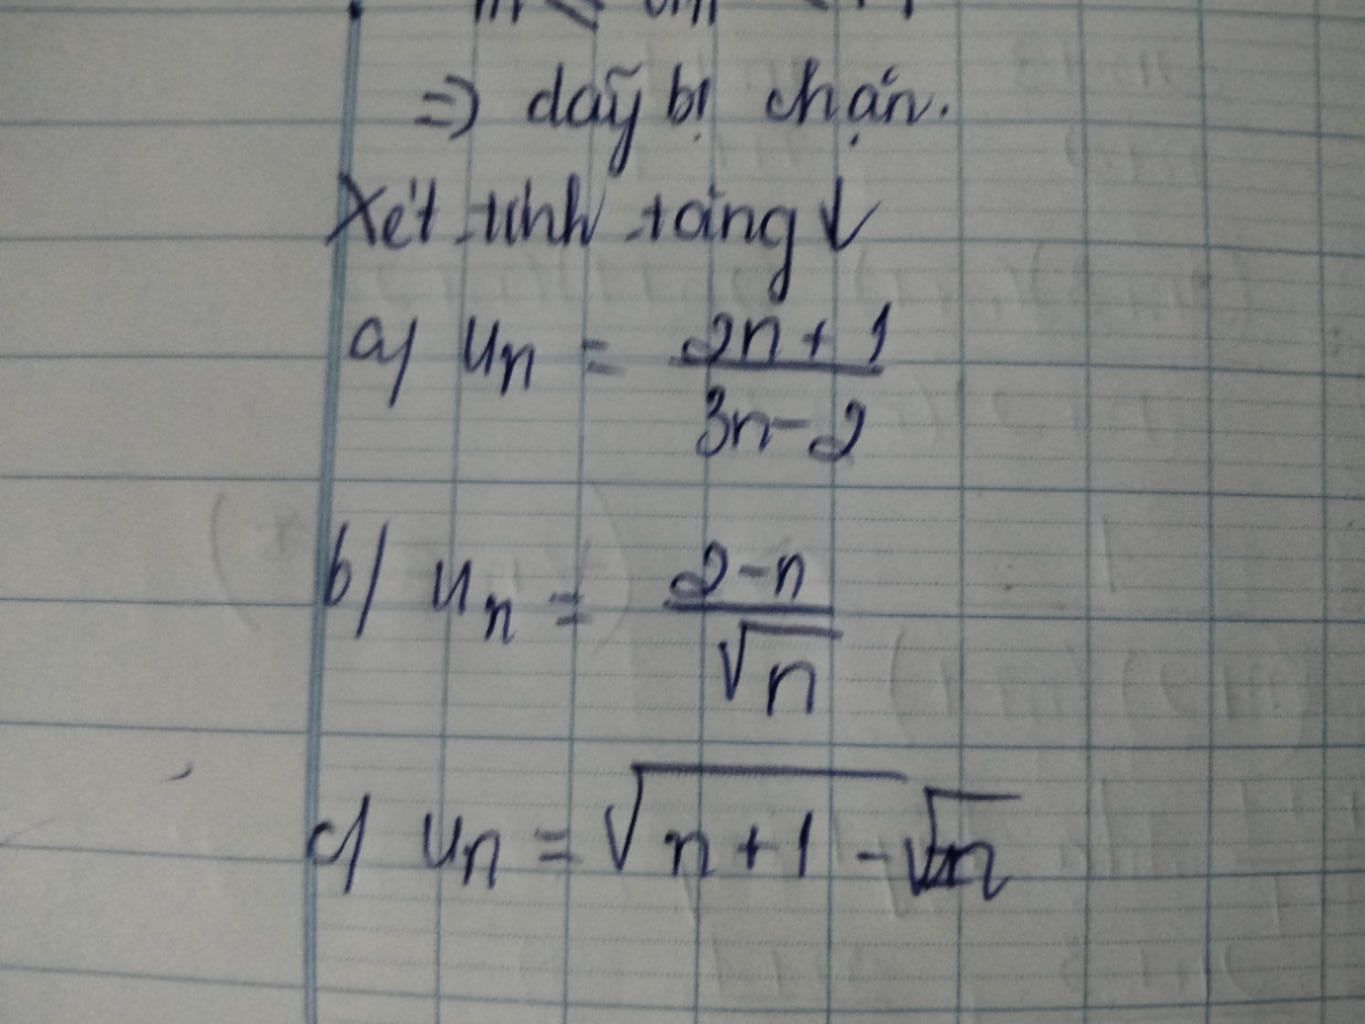 => dãy bị chặn.
Xét tính tăng ↓
a) uₙ = (2n + 1)/(3n - 2)
b) uₙ = (2 - n)/√n
c) uₙ = √(n + 1) - √n